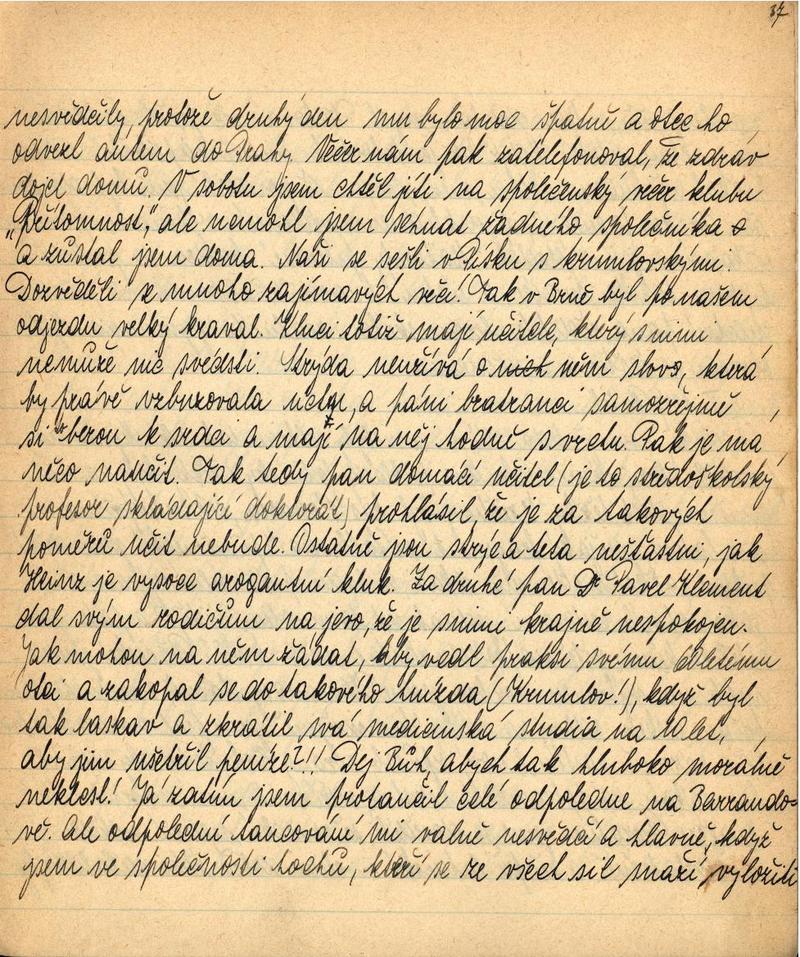 37
nesvědčily, protože druhý den mu bylo moc špatně a otec ho
odvezl autem do Prahy. Večer nám pak zatelefonoval, že zdráv
dojel domů. V sobotu jsem chtěl jíti na společenský večer klubu
„Přítomnost", ale nemohl jsem sehnat žádného společníka
a zůstal jsem doma. Naši se sešli v Písku s krumlovskými.
Dozvěděli z mnoho zajímavých věcí. Tak v Brně byl po našem
odjezdu velký kraval. Kluci totiž mají učitele, který s nimi
nemůže nic svésti. Strýda neužívá o nich něm slovo, která
by právě vzbuzovala úctu, a páni bratranci samozřejmě
si berou k srdci a mají na něj hodně s vrchu. Pak je má
něco naučit. Tak tedy pan domácí učitel (je to středoškolský
profesor skládající doktorát) prohlásil, že je za takových
poměrů učit nebude. Ostatně jsou strýc a teta nešťastni, jak
Heinz je vysoce arogantní kluk. Za druhé pan Dr Pavel Klement
dal svým rodičům na jevo, že je s nimi krajně nespokojen.
Jak mohou na něm žádat, aby vedl praksi svému 60letému
otci a zakopal se do takového hnízda (Krumlov!), když byl
tak laskav a zkrátil svá medicinská studia na 10 let,
aby jim ušetřil peníze?!! Dej Bůh, abych tak hluboko morálně
neklesl! Já zatím jsem protančil celé odpoledne na Barrando-
vě. Ale odpolední tancování mi valně nesvědčí a hlavně, když
jsem ve společnosti hochů, kteří se ze všech sil snaží vyložiti